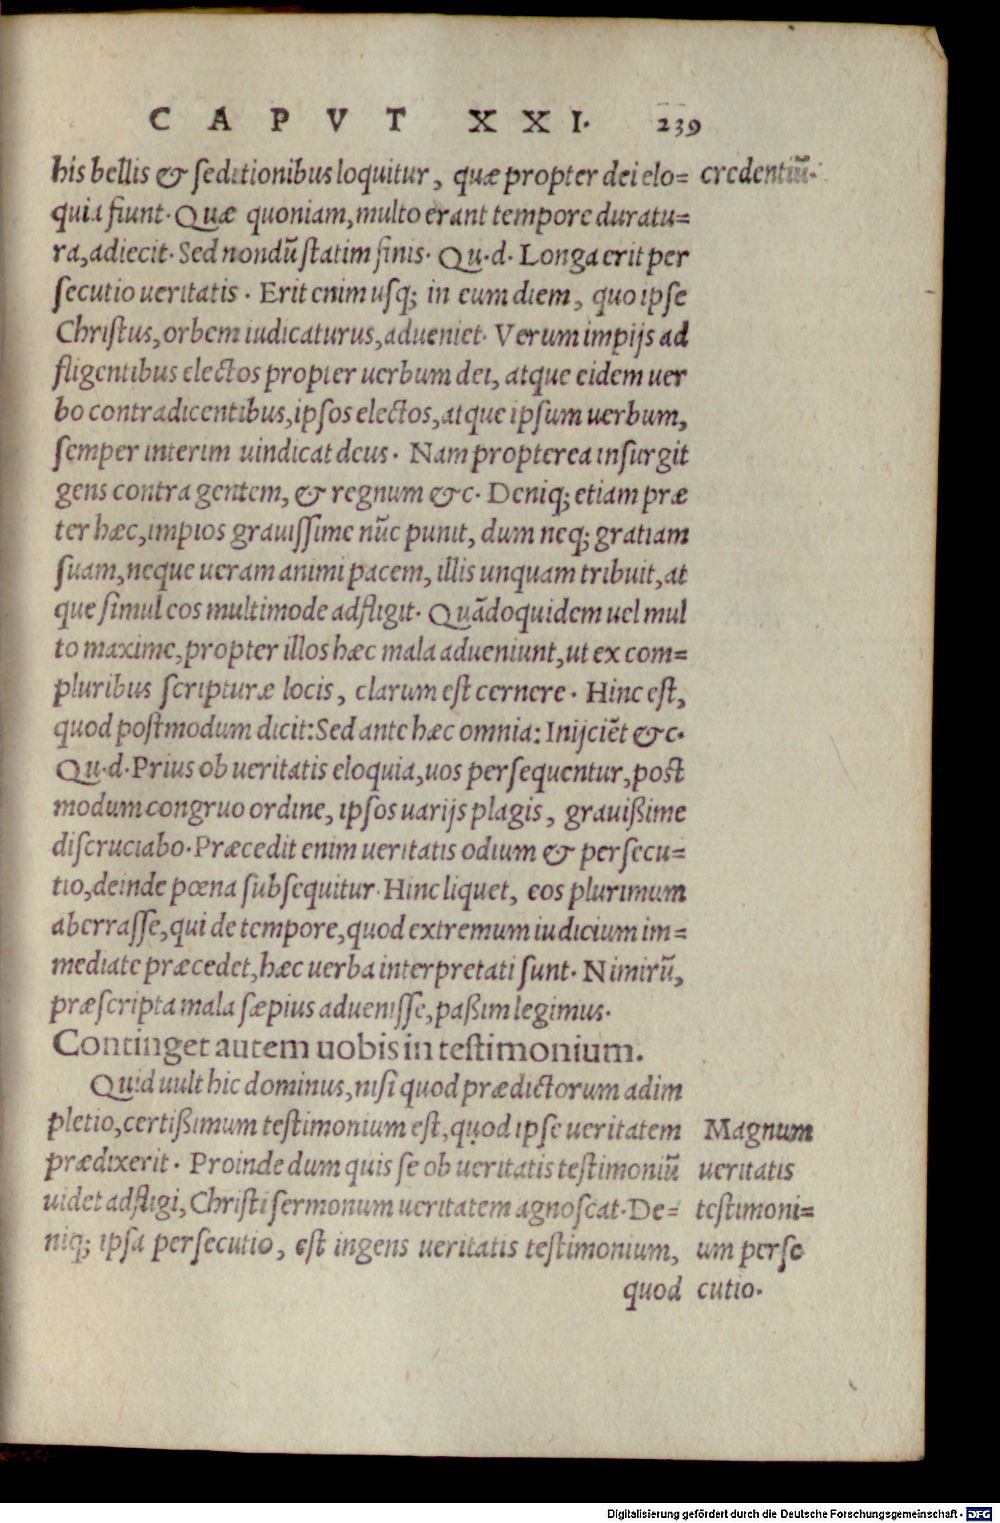 CAPVT XXI. 239
his bellis & seditionibus loquitur, quæ propter dei elo=
credentiũ.
quia fiunt. Quæ quoniam, multo erant tempore duratu=
ra, adiecit. Sed nondũ statim finis. Qu.d. Longa erit per
secutio ueritatis. Erit enim usq; in eum diem, quo ipse
Christus, orbem iudicaturus, adueniet. Verum impijs ad
fligentibus electos propter uerbum dei, atque eidem uer
bo contradicentibus, ipsos electos, atque ipsum uerbum,
semper interim uindicat deus. Nam propterea insurgit
gens contra gentem, & regnum &c. Deniq; etiam præ
ter hæc, impios grauissime nũc punit, dum neq; gratiam
suam, neque ueram animi pacem, illis unquam tribuit, at
que simul eos multimode adfligit. Quãdoquidem uel mul
to maxime, propter illos hæc mala adueniunt, ut ex com=
pluribus scripturæ locis, clarum est cernere. Hinc est,
quod postmodum dicit: Sed ante hæc omnia: Inijciẽt &c.
Qu.d. Prius ob ueritatis eloquia, uos persequentur, post
modum congruo ordine, ipsos uarijs plagis, grauißime
discruciabo. Præcedit enim ueritatis odium & persecu=
tio, deinde pœna subsequitur. Hinc liquet, eos plurimum
aberrasse, qui de tempore, quod extremum iudicium im=
mediate præcedet, hæc uerba interpretati sunt. Nimirũ,
præscripta mala sæpius aduenisse, paßim legimus.
Continget autem uobis in testimonium.
Quid uult hic dominus, nisi quod prædictorum adim
pletio, certißimum testimonium est, quod ipse ueritatem
prædixerit. Proinde dum quis se ob ueritatis testimoniũ
uidet adfligi, Christi sermonum ueritatem agnoscat. De=
niq; ipsa persecutio, est ingens ueritatis testimonium,
quod
Magnum
ueritatis
testimoni=
um perse
cutio.
Digitalisierung gefördert durch die Deutsche Forschungsgemeinschaft - DFG